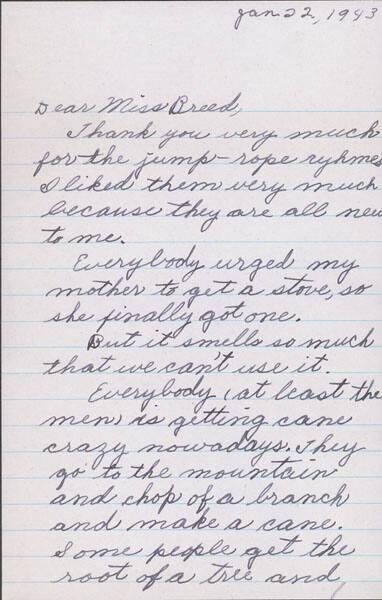 Jan 22, 1943
Dear Miss Breed,
Thank you very much
for the jump-rope ryhmes
I liked them very much
because they are all new
to me.
Everybody urged my
mother to get a stove, so
she finally got one.
But it smells so much
that we can't use it.
Everybody (at least the
men) is getting cane
crazy nowadays. They
go to the mountain
and chop of a branch
and make a cane.
Some people get the
root of a tree and